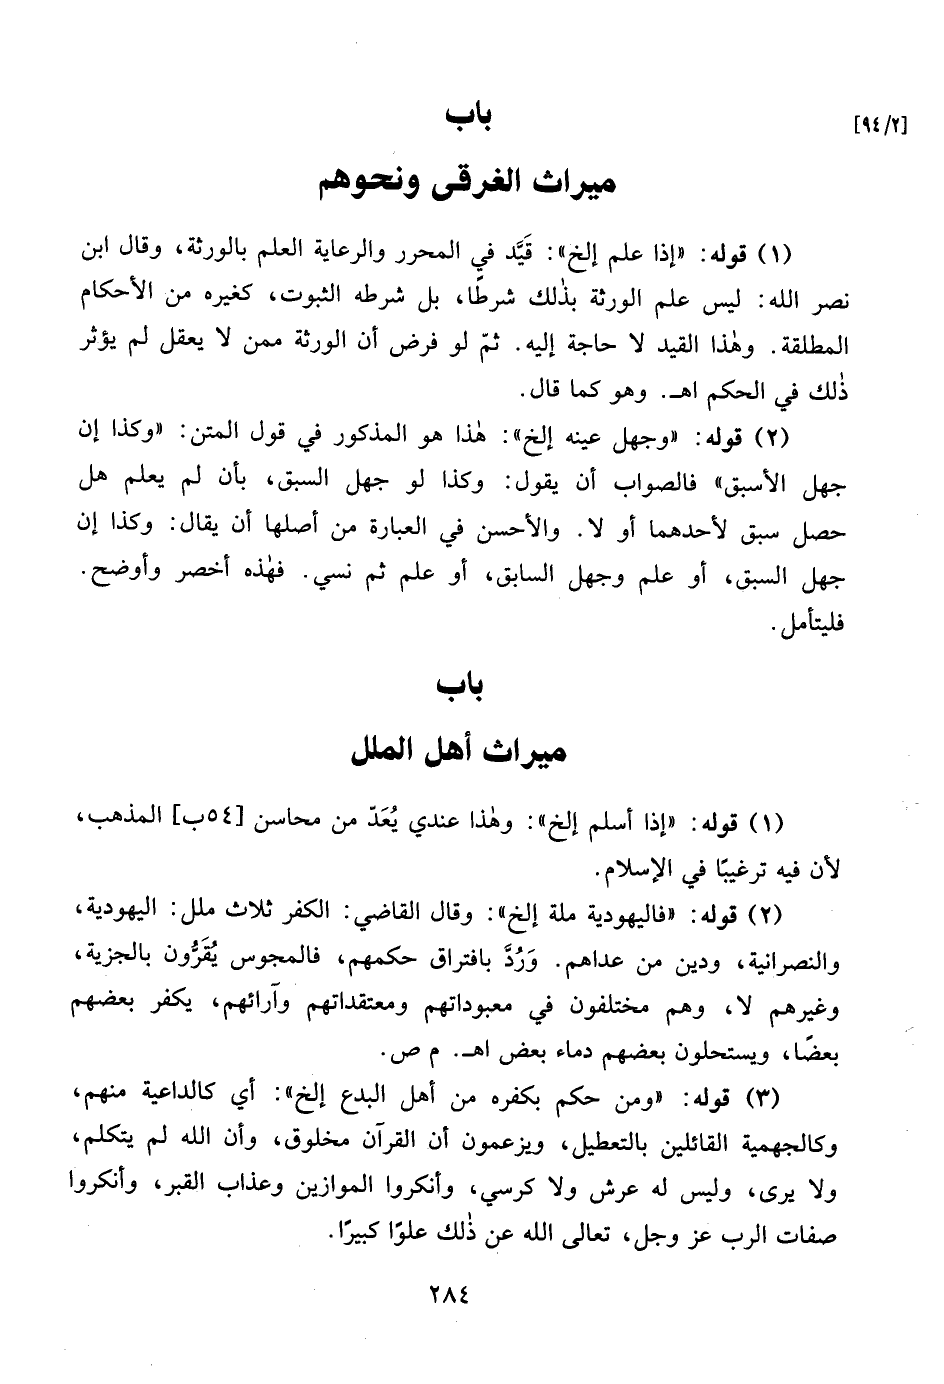 [٩٤/٢]
باب
ميراث الغرقى ونحوهم
(١) قوله: «إذا علم إلخ»: قَيَّد في المحرر والرعاية العلم بالورثة، وقال ابن
نصر الله: ليس علم الورثة بذٰلك شرطًا، بل شرطه الثبوت، كغيره من الأحكام
المطلقة. وهٰذا القيد لا حاجة إليه. ثمّ لو فرض أن الورثة ممن لا يعقل لم يؤثر
ذٰلك في الحكم اهـ. وهو كما قال.
(٢) قوله: «وجهل عينه إلخ»: هٰذا هو المذكور في قول المتن: «وكذا إن
جهل الأسبق» فالصواب أن يقول: وكذا لو جهل السبق، بأن لم يعلم هل
حصل سبق لأحدهما أو لا. والأحسن في العبارة من أصلها أن يقال: وكذا إن
جهل السبق، أو علم وجهل السابق، أو علم ثم نسي. فهٰذه أخصر وأوضح.
فليتأمل.
باب
ميراث أهل الملل
(١) قوله: «إذا أسلم إلخ»: وهٰذا عندي يُعَدّ من محاسن [٥٤ب] المذهب،
لأن فيه ترغيبًا في الإسلام.
(٢) قوله: «فاليهودية ملة إلخ»: وقال القاضي: الكفر ثلاث ملل: اليهودية،
والنصرانية، ودين من عداهم. وَرُدَّ بافتراق حكمهم، فالمجوس يُقَرُّون بالجزية،
وغيرهم لا، وهم مختلفون في معبوداتهم ومعتقداتهم وآرائهم، يكفر بعضهم
بعضًا، ويستحلون بعضهم دماء بعض اهـ. م ص.
(٣) قوله: «ومن حكم بكفره من أهل البدع إلخ»: أي كالداعية منهم،
وكالجهمية القائلين بالتعطيل، ويزعمون أن القرآن مخلوق، وأن الله لم يتكلم،
ولا يرى، وليس له عرش ولا كرسي، وأنكروا الموازين وعذاب القبر، وأنكروا
صفات الرب عز وجل، تعالى الله عن ذٰلك علوًا كبيرًا.
٢٨٤